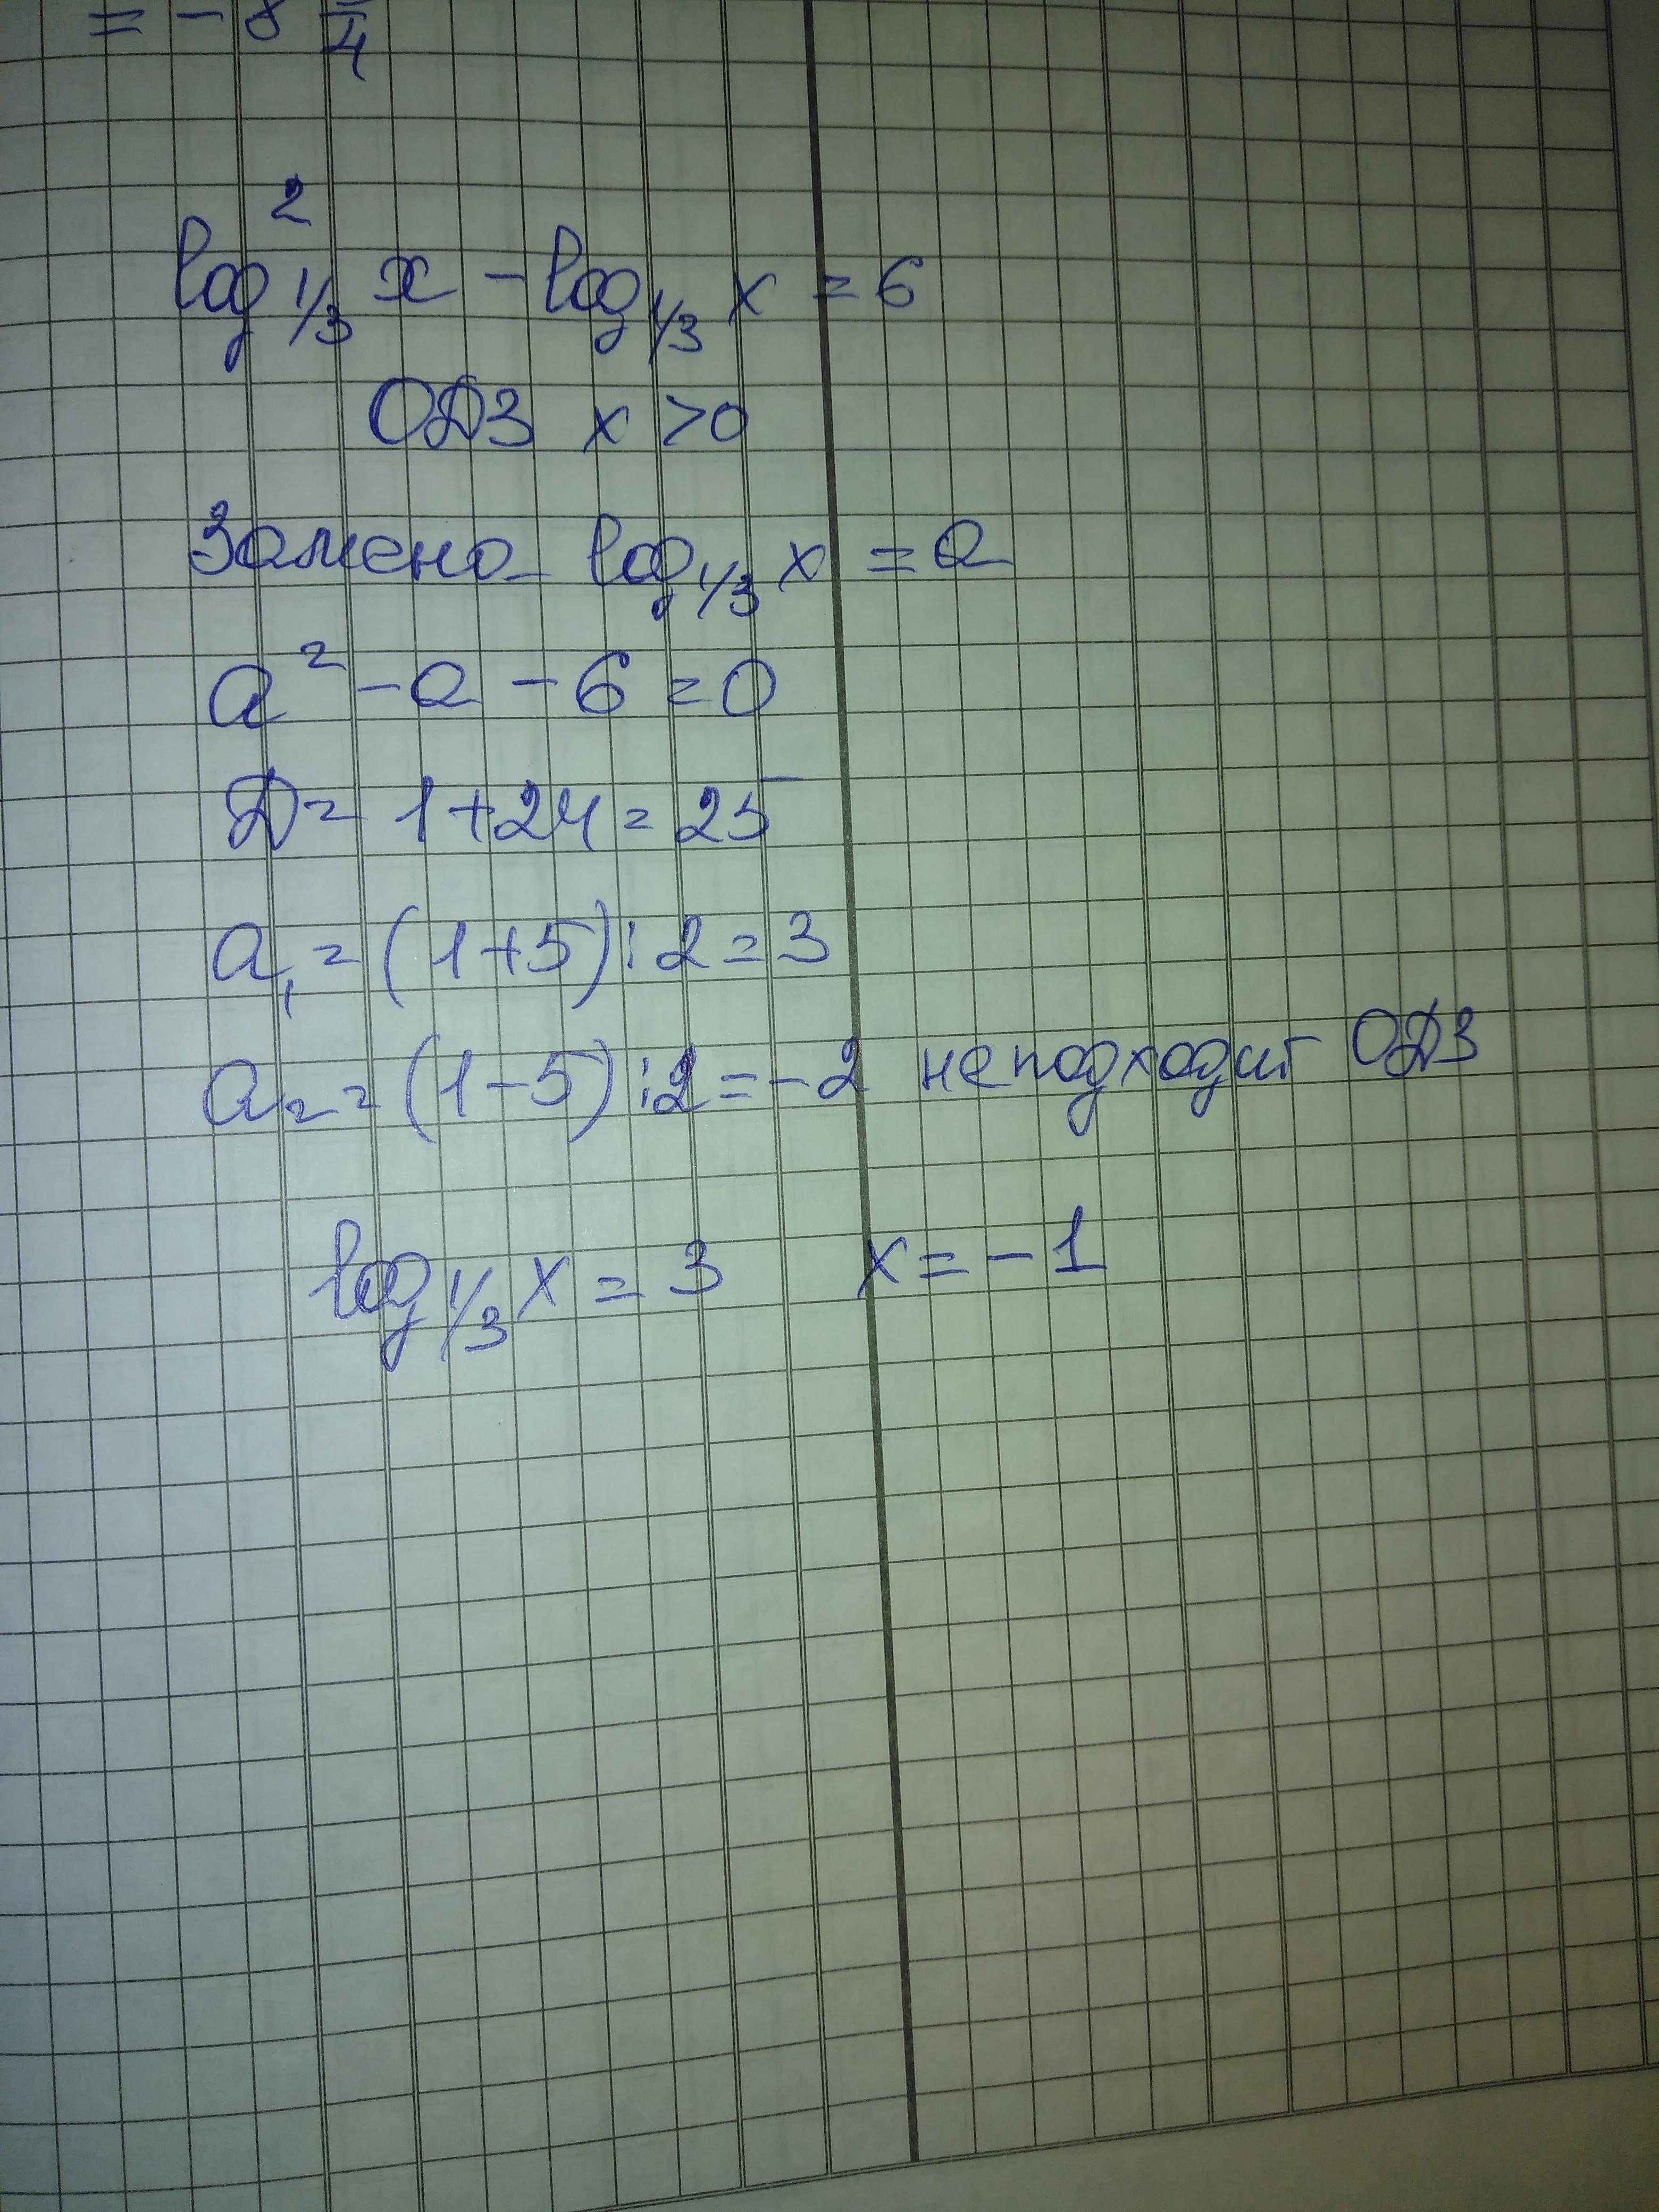 = - 8 /4
log²₁/₃ x - log₁/₃ x = 6
ОДЗ x > 0
Замена log₁/₃ x = a
a² - a - 6 = 0
Д = 1 + 24 = 25
a₁ = (1 + 5) : 2 = 3
a₂ = (1 - 5) : 2 = - 2 не подходит ОДЗ
log₁/₃ x = 3 x = - 1